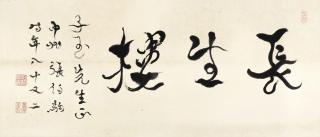 長生樓
子玉先生正
中州張伯駒
時年八十又二